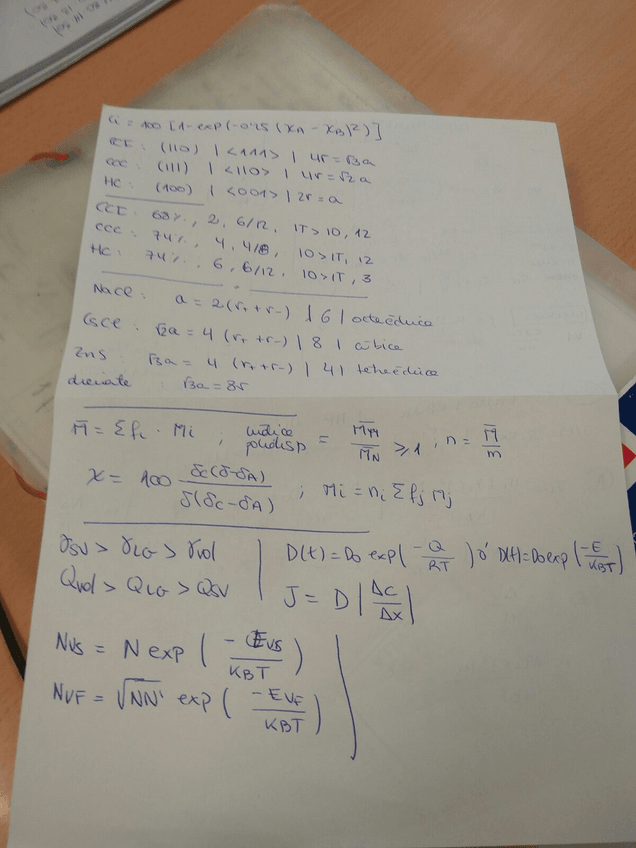 Ci = 100 [1-exp(-0'25 (XA - XB)²)]
CCI: (110) | <111> | 4r = √3a
CCC: (111) | <110> | 4r = √2a
HC: (100) | <001> | 2r = a
CCI: 68%, 2, 6/12, IT > IO, 12
CCC: 74%, 4, 4/8, IO > IT, 12
HC: 74%, 6, 6/12, IO > IT, 3
NaCl: a = 2(r+ + r-) | 6 | octaédrica
CsCl: √3a = 4 (r+ + r-) | 8 | cúbica
ZnS: √3a = 4 (r+ + r-) | 4 | tetraédrica
diamante √3a = 8r
M̄ = Σ fi · Mi ; índice polidisp = M̄M/M̄N ≥ 1 ; n = M̄/m
X = 100 δc(δ-δA)/δ(δc-δA) ; Mi = ni Σ fj Mj
γSV > γLG > γvol
Qvol > QLG > QSV
D(t) = Do exp(-Q/RT) ó D(t) = Do exp(-E/KBT)
J = D |ΔC/Δx|
NVS = N exp (-EVS/KBT)
NVF = √NN' exp (-EVF/KBT)